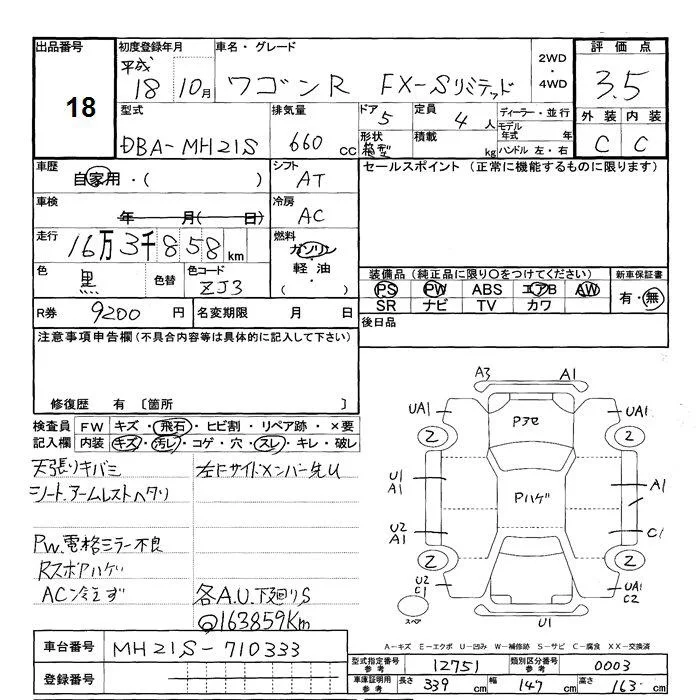 出品番号 初度登録年月 車名・グレード 2WD・4WD 評価点
18 平成 18 10月 ワゴンR FX-Sリミテッド 3.5
外装 内装
C C
型式 DBA-MH21S 排気量 660 cc
ドア 5 定員 4人 ディーラー・並行
形状 箱型 積載 kg モデル年式 年 ハンドル 左・右
車歴 自家用・( )
シフト AT
セールスポイント (正常に機能するものに限ります)
車検 年 月( 日)
冷房 AC
走行 16万3千858km
燃料 ガソリン・軽油・( )
色 黒 色替 色コード ZJ3
装備品 (純正品に限り○をつけてください) 新車保証書
PS PW ABS エアB AW 有・無
SR ナビ TV カワ
R券 9200円 名変期限 月 日
後日品
注意事項申告欄 (不具合内容等は具体的に記入して下さい)
修復歴 有 〔箇所 〕
検査員 FW キズ・飛石・ヒビ割・リペア跡・×要
記入欄 内装 キズ・汚レ・コゲ・穴・スレ・キレ・破レ
天張りキバミ
シート、アームレストヘタリ
左Fサイドメンバー先U
PW、電格ミラー不良
Rスポアハゲ
AC冷えず
各A.U、下廻りS
163859Km
A3 A1
UA1 Pアセ UA1
2 2
U1 A1 Pハゲ A1
U2 A1 C1
2 2
U2 C1 UA1 C2
スペア U1
A-キズ E-エクボ U-凹み W-補修跡 S-サビ C-腐食 XX-交換済
車台番号 MH21S-710333
登録番号
型式指定番号 参考 12751 類別区分番号 参考 0003
車庫証明用 参考 長さ 339cm 幅 147cm 高さ 163cm